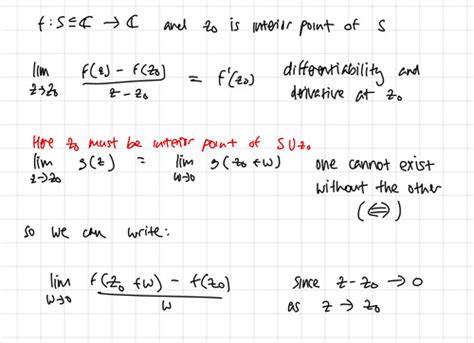 f : S ⊆ ℂ → ℂ and z₀ is interior point of S
lim z→z₀ (f(z) − f(z₀)) / (z − z₀) = f'(z₀) differentiability and
derivative at z₀
Here z₀ must be interior point of S ∪ z₀
lim z→z₀ g(z) = lim w→0 g(z₀ + w) one cannot exist
without the other
(⇔)
so we can write:
lim w→0 (f(z₀ + w) − f(z₀)) / w since z − z₀ → 0
as z → z₀